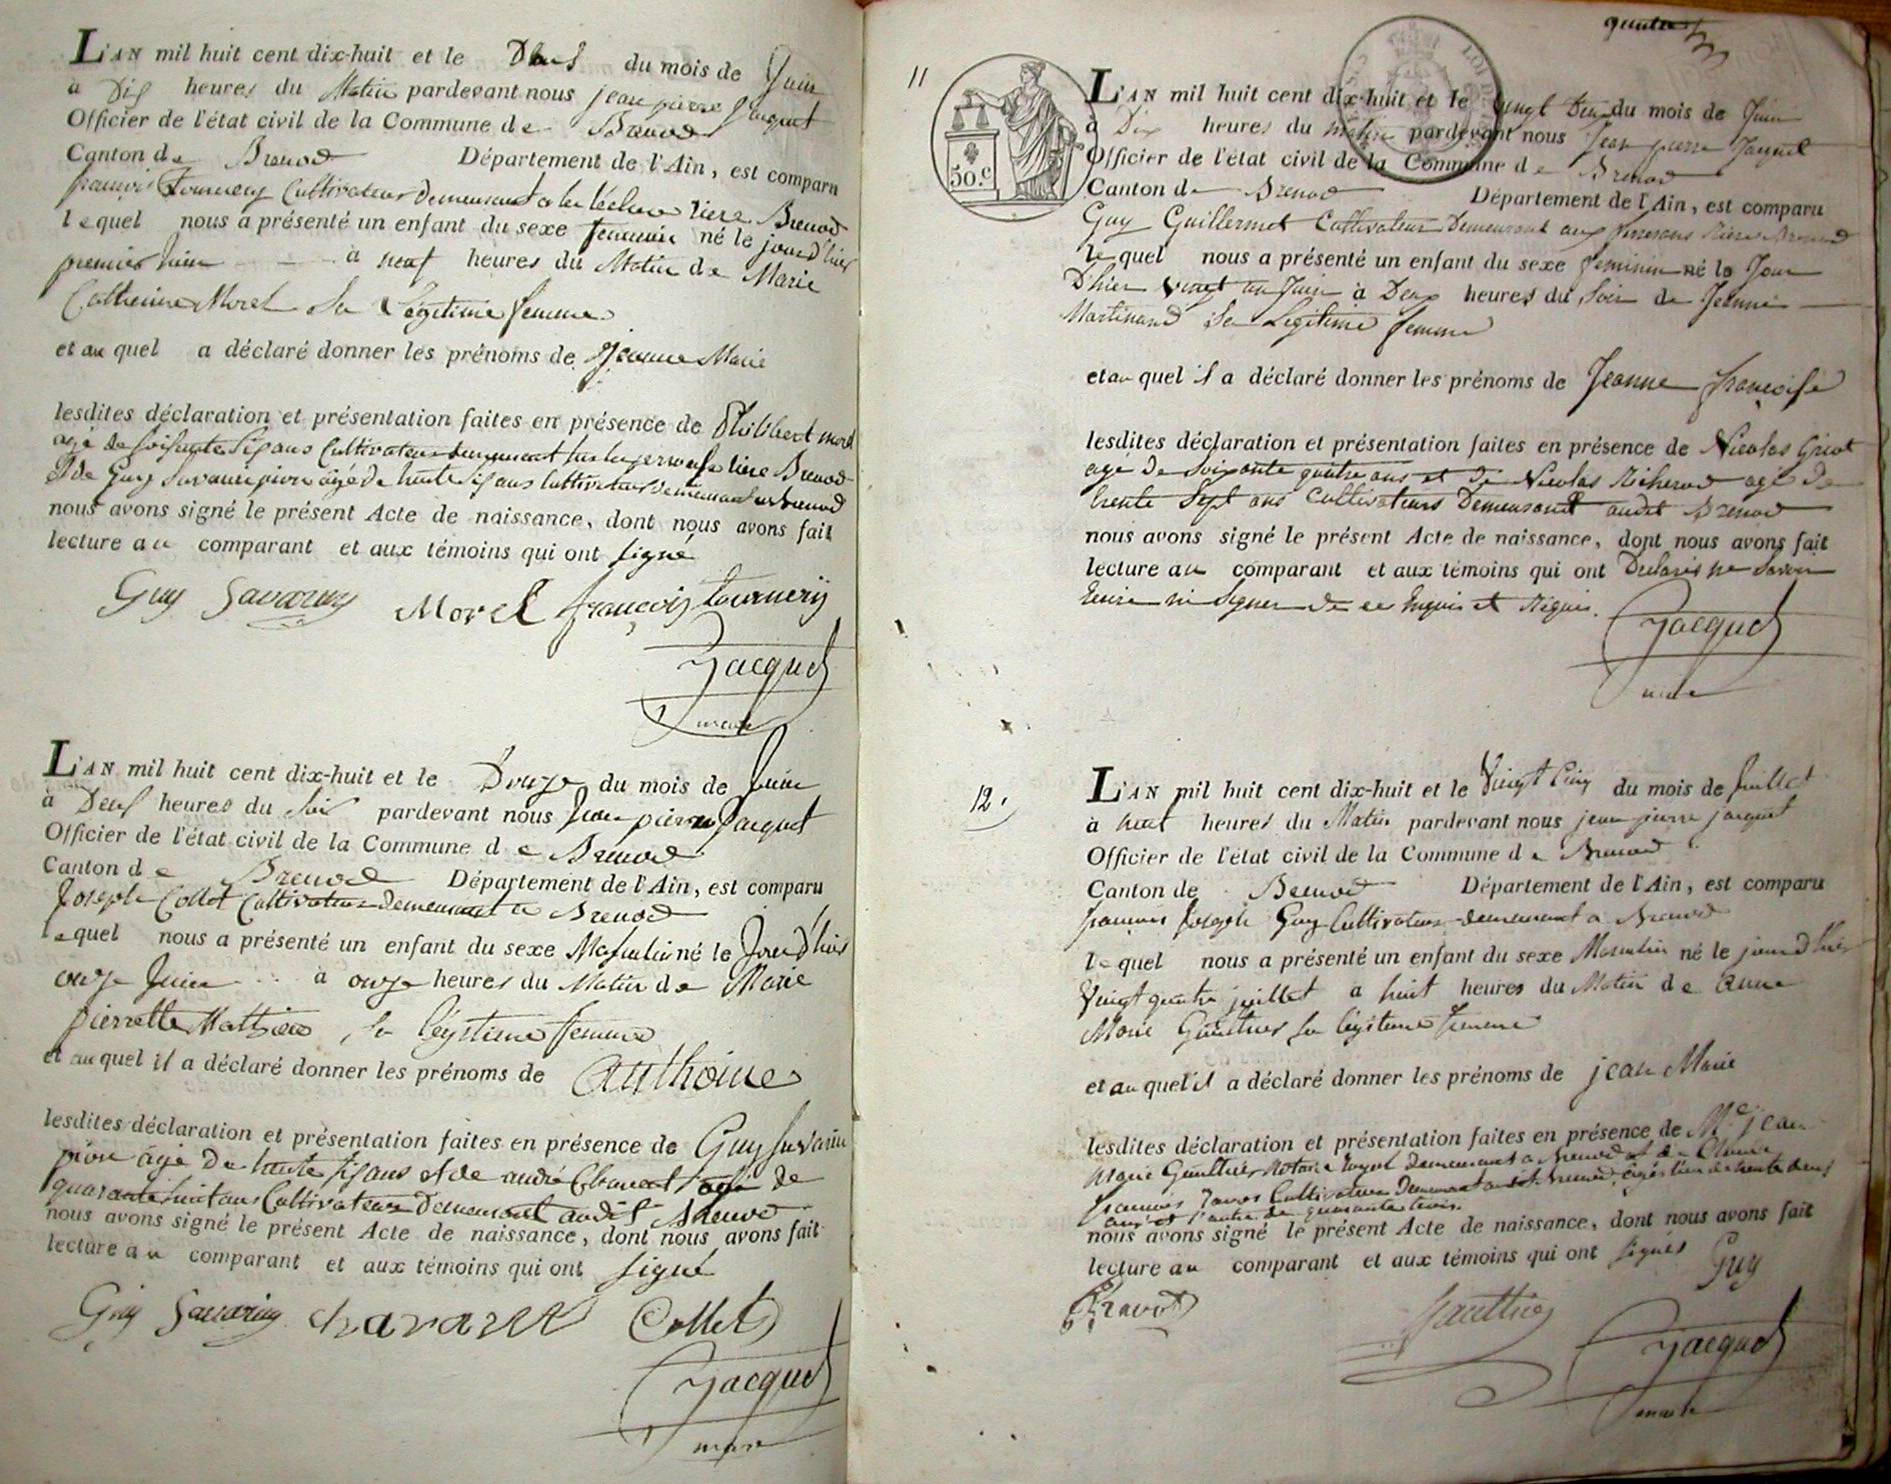 L'AN mil huit cent dix-huit et le Deux du mois de Juin
à Dix heures du Matin pardevant nous jean pierre Jacquet
Officier de l'état civil de la Commune de Brenod
Canton de Brenod Département de l'Ain, est comparu
françois Tournery Cultivateur Demeurant a la Léchere riere Brenod
lequel nous a présenté un enfant du sexe feminin né le jourd'hier
premier Juin à neuf heures du Matin de Marie
Catherine Morel Sa Légitime femme
et au quel a déclaré donner les prénoms de Jeanne Marie
lesdites déclaration et présentation faites en présence de Philibert morel
agé de soisante Six ans Cultivateur demeurant riere Brenod
et de Guy Savarin pion agé de trente Six ans Cultivateur demeurant a Brenod
nous avons signé le présent Acte de naissance, dont nous avons fait
lecture au comparant et aux témoins qui ont signé
Guy Savarin Morel françois tournery
Jacquet
maire
L'AN mil huit cent dix-huit et le Douze du mois de Juin
à Deux heures du Soir pardevant nous Jean pierre Jacquet
Officier de l'état civil de la Commune de Brenod
Canton de Brenod Département de l'Ain, est comparu
Joseph Collet Cultivateur demeurant a Brenod
lequel nous a présenté un enfant du sexe Masculin né le Jourd'hier
onze Juin à onze heures du Matin de Marie
pierrette Mathieu, sa légitime femme
et au quel il a déclaré donner les prénoms de Anthoine
lesdites déclaration et présentation faites en présence de Guy Savarin
pion agé De trente six ans et de andré Chavent agé de
quarante huit ans Cultivateurs Demeurant audit Brenod
nous avons signé le présent Acte de naissance, dont nous avons fait
lecture au comparant et aux témoins qui ont signé
Guy Savarin Collet
Jacquet
maire
quatre
11
50.c
L'AN mil huit cent dix-huit et le vingt Deux du mois de Juin
à Dix heures du matin pardevant nous Jean pierre Jacquet
Officier de l'état civil de la Commune de Brenod
Canton de Brenod Département de l'Ain, est comparu
Guy Guillermet Cultivateur Demeurant aux riere Brenod
lequel nous a présenté un enfant du sexe feminin né le Jour
D'hier vingt un Juin à Deux heures du Soir de Jeanne
Martinand Sa Legitime femme
et au quel il a déclaré donner les prénoms de Jeanne françoise
lesdites déclaration et présentation faites en présence de Nicolas Griot
agé de Soixante quatre ans et de Nicolas Richerod agé De
trente Sept ans Cultivateurs Demeurant audit Brenod
nous avons signé le présent Acte de naissance, dont nous avons fait
lecture au comparant et aux témoins qui ont Declarés ne Savoir
Ecrire ni Signer de ce Enquis et Requis.
Jacquet
maire
12.
L'AN mil huit cent dix-huit et le Vingt Cinq du mois de Juillet
à neuf heures du Matin pardevant nous jean pierre jacquet
Officier de l'état civil de la Commune de Brenod
Canton de Brenod Département de l'Ain, est comparu
françois Joseph Guy Cultivateur demeurant a Brenod
lequel nous a présenté un enfant du sexe Masculin né le jourd'hier
Vingt quatre juillet à huit heures du Matin de anne
Marie Gaulthier sa légitime femme
et au quel il a déclaré donner les prénoms de jean Marie
lesdites déclaration et présentation faites en présence de Me jean
Marie Gaulthier Notaire Royal Demeurant a Brenod et de Claude
françois Cultivateur Demeurant audit Brenod, agés l'un de trente deux
ans et l'autre de quarante trois.
nous avons signé le présent Acte de naissance, dont nous avons fait
lecture au comparant et aux témoins qui ont signés Guy
Gaulthier
Jacquet
maire